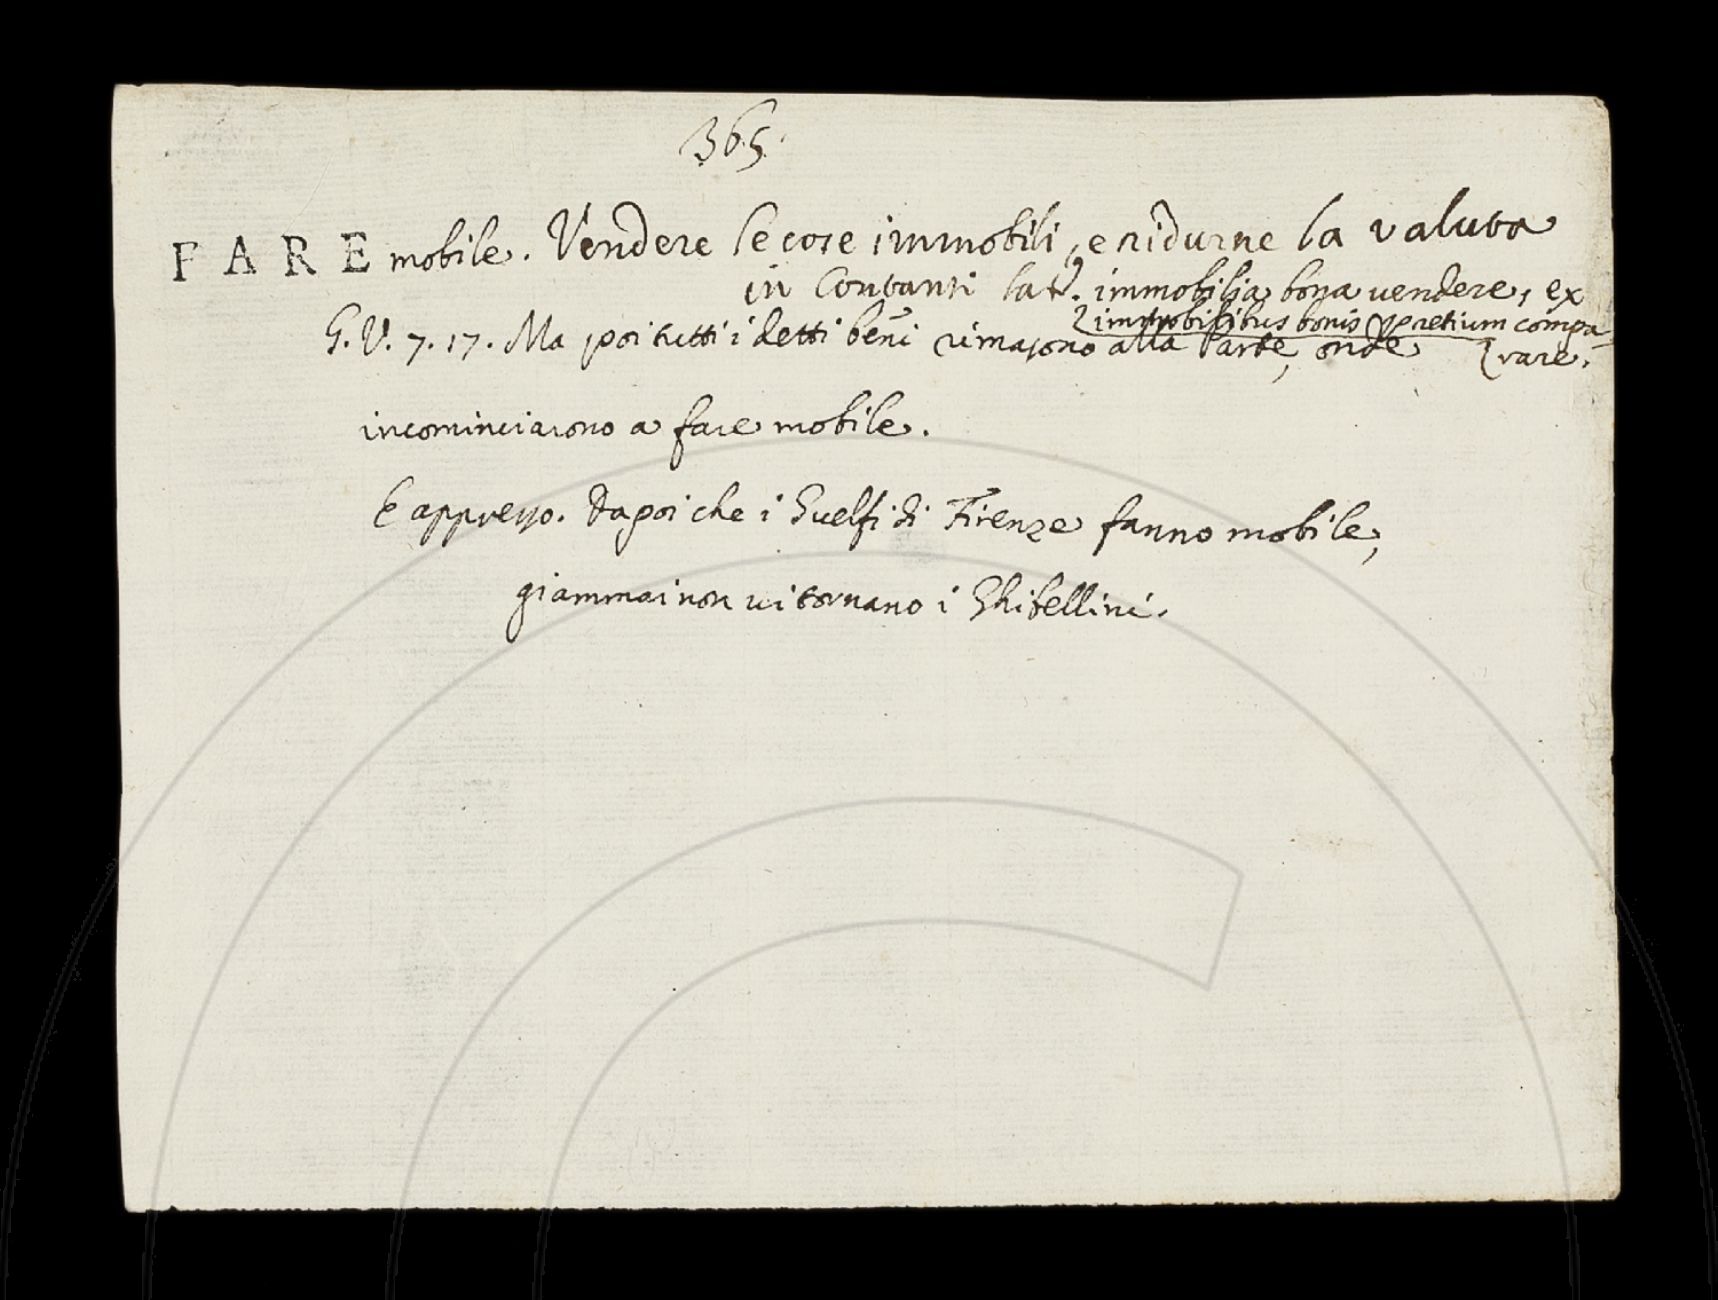 365.
FARE mobile. Vendere le cose immobili, e ridurne la valuta
in Contanti lat. immobilia bona vendere, ex
immobilibus bonis pretium compa-
G. V. 7. 17. Ma poi tutti i detti beni rimasono alla Parte, onde
rare.
incominciarono a fare mobile.
E appresso. Dapoi che i Guelfi di Firenze fanno mobile,
giammai non vi tornano i Ghibellini.